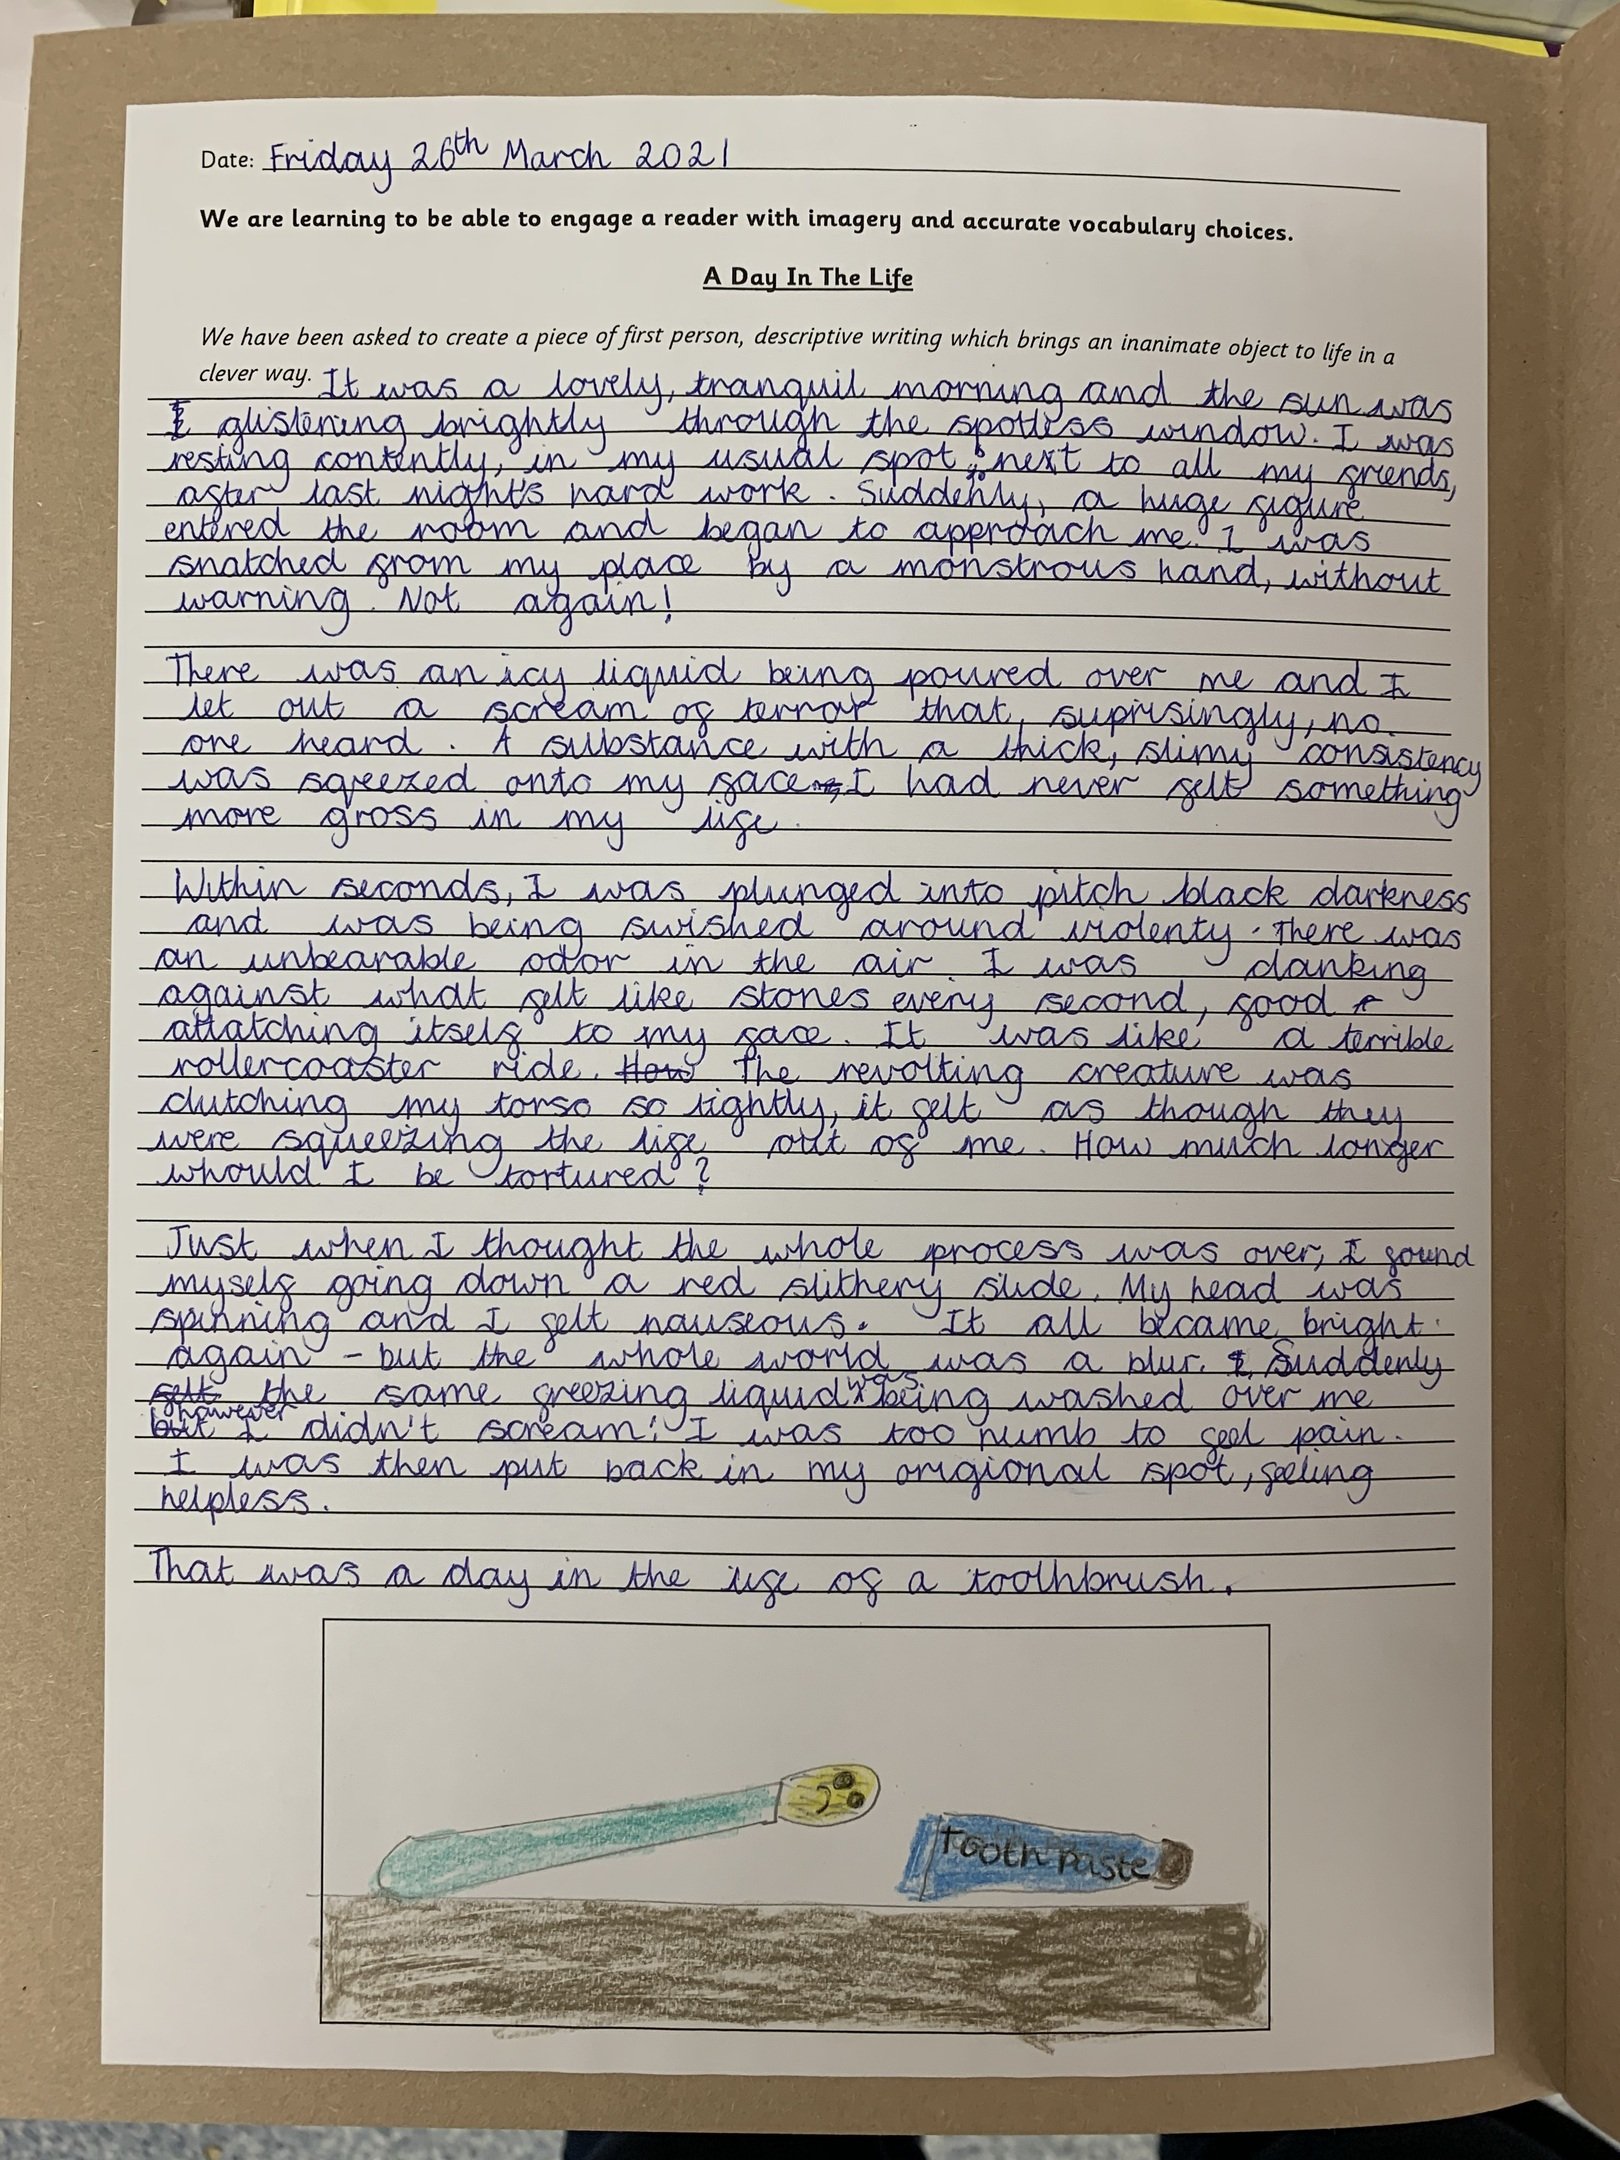 Date: Friday 26th March 2021
We are learning to be able to engage a reader with imagery and accurate vocabulary choices.
A Day In The Life
We have been asked to create a piece of first person, descriptive writing which brings an inanimate object to life in a
clever way. It was a lovely, tranquil morning and the sun was
glistening brightly through the spotless window. I was
resting contently, in my usual spot next to all my friends,
after last night's hard work. Suddenly, a huge figure
entered the room and began to approach me. I was
snatched from my place by a monstrous hand, without
warning. Not again!
There was an icy liquid being poured over me and I
let out a scream of terror that, suprisingly, no
one heard. A substance with a thick, slimy consistency
was sqeezed onto my face. I had never felt something
more gross in my life.
Within seconds, I was plunged into pitch black darkness
and was being swished around violenty. There was
an unbearable odor in the air. I was clanking
against what felt like stones every second, food
attatching itself to my face. It was like a terrible
rollercoaster ride. How The revolting creature was
clutching my torso so tightly, it felt as though they
were squeezing the life out of me. How much longer
whould I be tortured?
Just when I thought the whole process was over, I found
myself going down a red slithery slide. My head was
spinning and I felt nauseous. It all became bright
again - but the whole world was a blur. Suddenly
felt the same freezing liquid was being washed over me
but however I didn't scream: I was too numb to feel pain.
I was then put back in my origional spot, feeling
helpless.
That was a day in the life of a toothbrush.
Tooth Paste